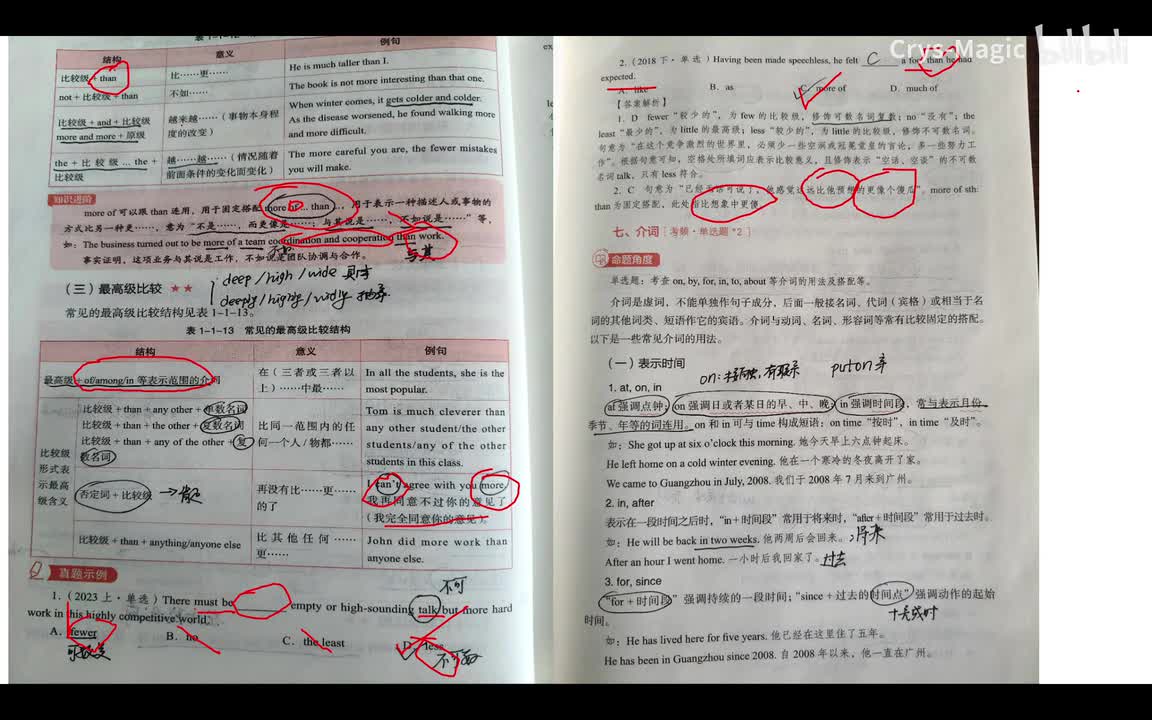 表 1-1-12
结构
意义
例句
比较级 + than
比……更……
He is much taller than I.
not + 比较级 + than
不如……
The book is not more interesting than that one.
比较级 + and + 比较级
more and more + 原级
越来越……（事物本身程
度的改变）
When winter comes, it gets colder and colder.
As the disease worsened, he found walking more
and more difficult.
the + 比较级 … the +
比较级
越……越……（情况随着
前面条件的变化而变化）
The more careful you are, the fewer mistakes
you will make.
知识进阶
more of 可以跟 than 连用，用于固定搭配 more of … than …，用于表示一种描述人或事物的
方式比另一种更……，意为“不是……，而更像是……；与其说是……，不如说是……”等，
如：The business turned out to be more of a team coordination and cooperation than work.
事实证明，这项业务与其说是工作，不如说是团队协调与合作。
不如
与其
（三）最高级比较 ★★
deep / high / wide 具体
deeply / highly / widely 抽象
常见的最高级比较结构见表 1-1-13。
表 1-1-13 常见的最高级比较结构
结构
意义
例句
最高级 + of/among/in 等表示范围的介词
在（三者或三者以
上）……中最……
In all the students, she is the
most popular.
比较级
形式表
示最高
级含义
比较级 + than + any other + 单数名词
比较级 + than + the other + 复数名词
比较级 + than + any of the other + 复
数名词
比同一范围内的任
何一个人 / 物都……
Tom is much cleverer than
any other student/the other
students/any of the other
students in this class.
否定词 + 比较级
再没有比……更……
的了
I can't agree with you more.
我再同意不过你的意见了
（我完全同意你的意见）。
比较级 + than + anything/anyone else
比其他任何……
更……
John did more work than
anyone else.
真题示例
不可
1.（2023 上·单选）There must be ______ empty or high-sounding talk but more hard
work in this highly competitive world.
A. fewer
B. no
C. the least
D. less
可数复
不可数
Crys-Magic bilibili
2.（2018 下·单选）Having been made speechless, he felt C a fool than he had
expected.
A. like
B. as
C. more of
D. much of
【答案解析】
1. D fewer“较少的”，为 few 的比较级，修饰可数名词复数；no“没有”；the
least“最少的”，为 little 的最高级；less“较少的”，为 little 的比较级，修饰不可数名词。
句意为“在这个竞争激烈的世界里，必须少一些空洞或冠冕堂皇的言论，多一些努力工
作”。根据句意可知，空格处所填词应表示比较意义，且修饰表示“空话、空谈”的不可数
名词 talk，只有 less 符合。
2. C 句意为“已经无话可说了，他感觉这远比他预想的更像个傻瓜”。more of sth
than 为固定搭配，此处指比想象中更傻。
七、介词 [ 考频·单选题 *2 ]
命题角度
单选题：考查 on, by, for, in, to, about 等介词的用法及搭配等。
介词是虚词，不能单独作句子成分，后面一般接名词、代词（宾格）或相当于名
词的其他词类、短语作它的宾语。介词与动词、名词、形容词等常有比较固定的搭配。
以下是一些常见介词的用法。
（一）表示时间
put on 穿
1. at, on, in
at 强调点钟；on 强调日或者某日的早、中、晚；in 强调时间段，常与表示月份、
季节、年等的词连用。on 和 in 可与 time 构成短语：on time“按时”，in time“及时”。
如：She got up at six o'clock this morning. 她今天早上六点钟起床。
He left home on a cold winter evening. 他在一个寒冷的冬夜离开了家。
We came to Guangzhou in July, 2008. 我们于 2008 年 7 月来到广州。
2. in, after
表示在一段时间之后时，“in + 时间段”常用于将来时，“after + 时间段”常用于过去时。
如：He will be back in two weeks. 他两周后会回来。将来
After an hour I went home. 一小时后我回家了。过去
3. for, since
“for + 时间段”强调持续的一段时间；“since + 过去的时间点”强调动作的起始
时间。
十完成时
如：He has lived here for five years. 他已经在这里住了五年。
He has been in Guangzhou since 2008. 自 2008 年以来，他一直在广州。